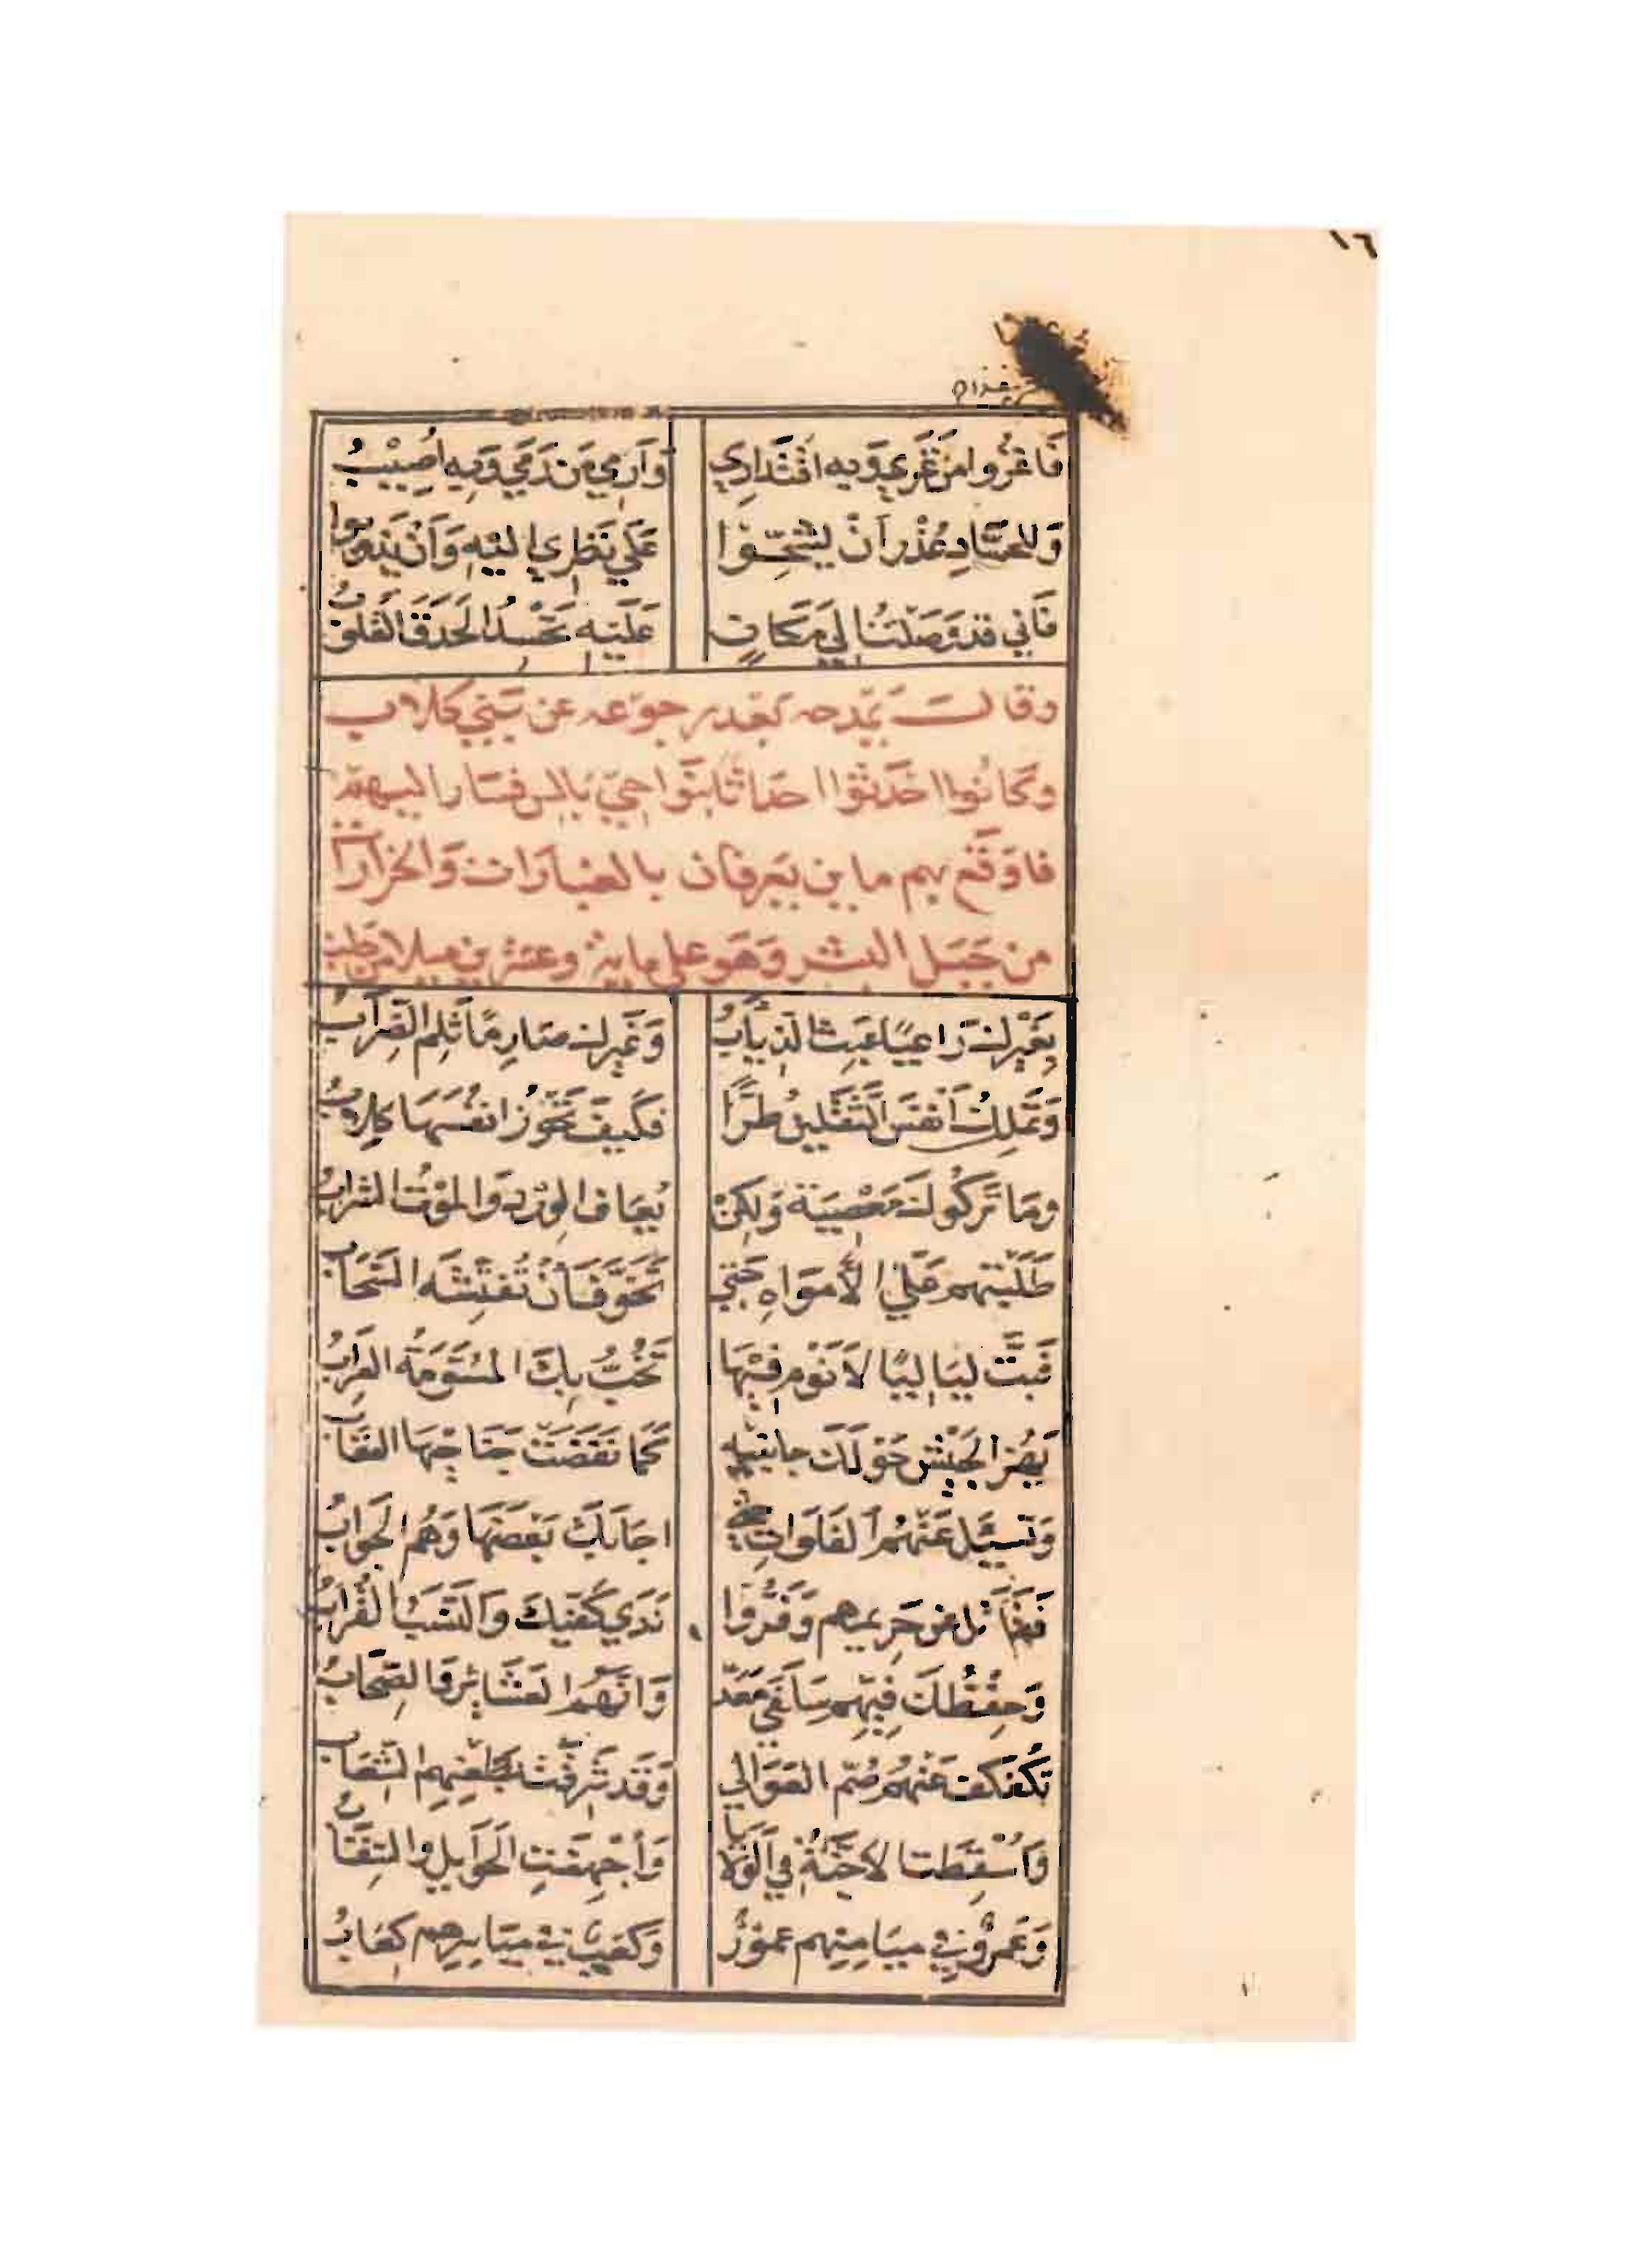 ١٦
فَاغْزُوا مَنْ غَزَى وَبِهِ اقْتِدَارِي وَأَرْمِي مَن رَمَى وَبِهِ أُصِيْبُ
وَلِلْحُسَّادِ عُذْرٌ أَنْ يَشُحُّوْا عَلَى نَظَرِي إِلَيْهِ وَأَنْ يَذُوبُوا
فَإِنِّي قَدْ وَصَلْتُ إِلَى مَكَانٍ عَلَيْهِ تَحْسُدُ الْحَدَقَ القُلُوبُ
وقال يَمْدحه بَعْد رجوعه عن بَنِي كلاب
وكَانُوا احْدَثُوْا حَدَثًا بنواحي بالس فسَار اليهم
فاوْقَع بهم ما بين بعرفان بالغبَارَات وَالخرارات
من جَبَل البشر وَهو على ماية وعشرين ميلا من حلب
بِغَيْرِكَ رَاعِيًا عَبِثَ الذِّيَابُ وَغَيْرِكَ صَارِمًا ثَلِمَ الضِّرَابُ
وَتَمْلِكُ أَنْفُسَ الثَّقَلَيْنِ طُرًّا فَكَيْفَ تَحُوْزُ انْفُسَهَا كِلَابُ
وَمَا تَرَكُوكَ مَعْصِيَةً وَلَكِنْ يُعَافُ الوِرْدُ وَالْمَوْتُ الشَّرَابُ
طَلَبْتَهُم عَلَى الْأَمْوَاهِ حَتَّى تَخَوَّفَ أَنْ تُفَتِّشَهُ السَّحَابُ
فَبِتَّ لَيَالِيًا لَا نَوْمَ فِيْهَا تَخُبُّ بِكَ الْمُسَوَّمَةُ العِرَابُ
يَهُزُّ الْجَيْشُ حَوْلَكَ جَانِبَيْهِ كَمَا نَفَضَتْ جَنَاحَيْهَا العُقَابُ
وَتَسْئَلُ عَنْهُمُ الفَلَوَاتِ حَتَّى اجَابَكَ بَعْضُهَا وَهُمُ الْجَوَابُ
فَقَاتَلَ عَنْ حَرِيمِهِم وَفَرُّوا نَدَى كَفَّيْكَ وَالنَّسَبُ القُرَابُ
وَحِفْظُكَ فِيْهِم سَلَفَيْ مَعَدٍّ وَانَّهُمُ العَشَائِرُ وَالصِّحَابُ
تُكَفْكِفُ عَنْهُمْ صُمَّ العَوَالِي وَقَدْ شَرِقَتْ بِظُعْنِهِمِ الشِّعَابُ
وَأُسْقِطَتِ الْأَجِنَّةُ فِي الوَلَايَا وَأُجْهِضَتِ الْحَوَائِلُ وَالسِّقَابُ
وَعَمْرٌو فِي مَيَامِنِهِم عُمُوْرٌ وَكَعْبٌ فِي مَيَاسِرِهِم كِعَابُ